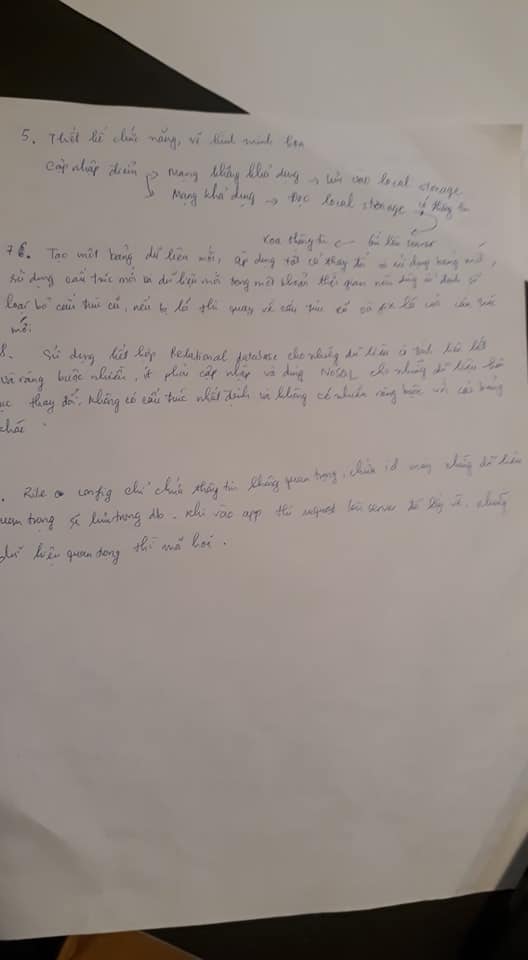 5. Thiết kế chức năng, vẽ hình minh họa
Cập nhập điểm → Mạng không khả dụng → lưu vào local storage
Mạng khả dụng → Đọc local storage → có thông tin
Xóa thông tin ← gửi lên server
7 6. Tạo một bảng dữ liệu mới, áp dụng tất cả thay đổi và sử dụng bảng mới,
sử dụng cấu trúc mới và dữ liệu mới trong một khoảng thời gian nếu đúng ổn định sẽ
loại bỏ cấu trúc cũ, nếu bị lỗi thì quay về cấu trúc cũ và fix lỗi của cấu trúc
mới.
8. Sử dụng kết hợp Relational database cho những dữ liệu có tính liên kết
và ràng buộc nhiều, ít phải cập nhập và dùng NoSQL cho những dữ liệu liên
tục thay đổi, không có cấu trúc nhất định và không có nhiều ràng buộc với các bảng
khác.
. File config chỉ chứa thông tin không quan trọng, chứa id những dữ liệu
quan trọng sẽ lưu trong db. Khi vào app thì request lên server để lấy về, những
dữ liệu quan trọng thì mã hoá.